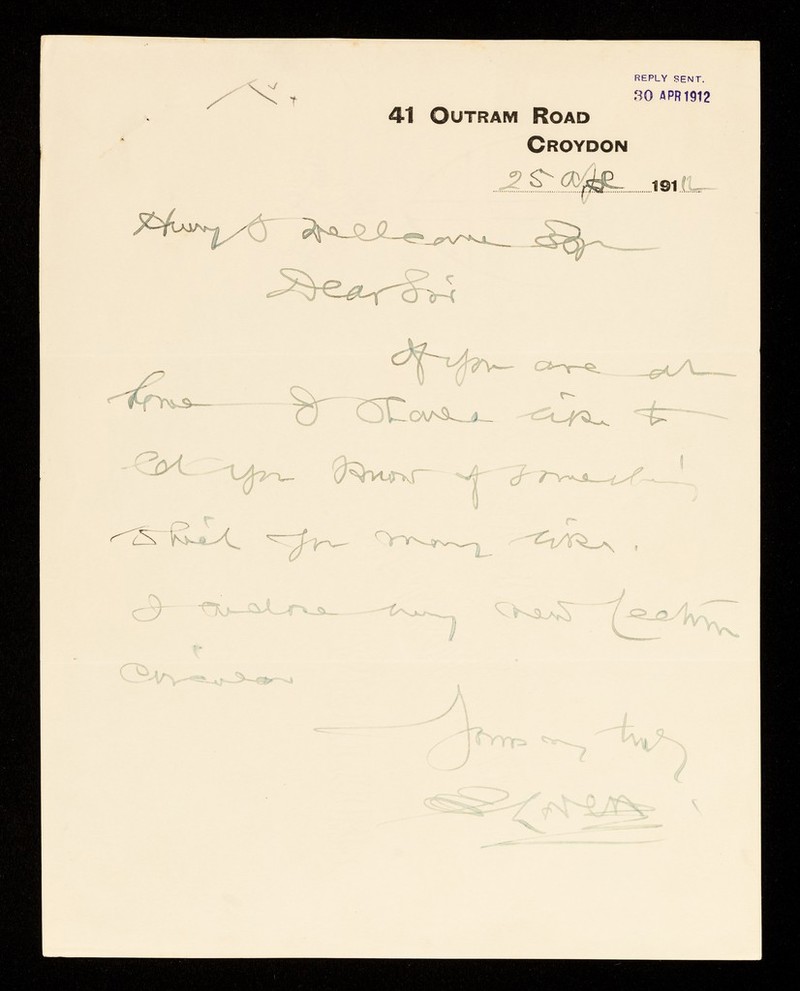 REPLY SENT.
30 APR 1912
41 OUTRAM ROAD
CROYDON
25 Apr 1912
Henry S Wellcome Esq
Dear Sir
If you are at
home I should like to
let you know of something
which you may like.
I enclose my new Lecture
Circular
Yours very truly